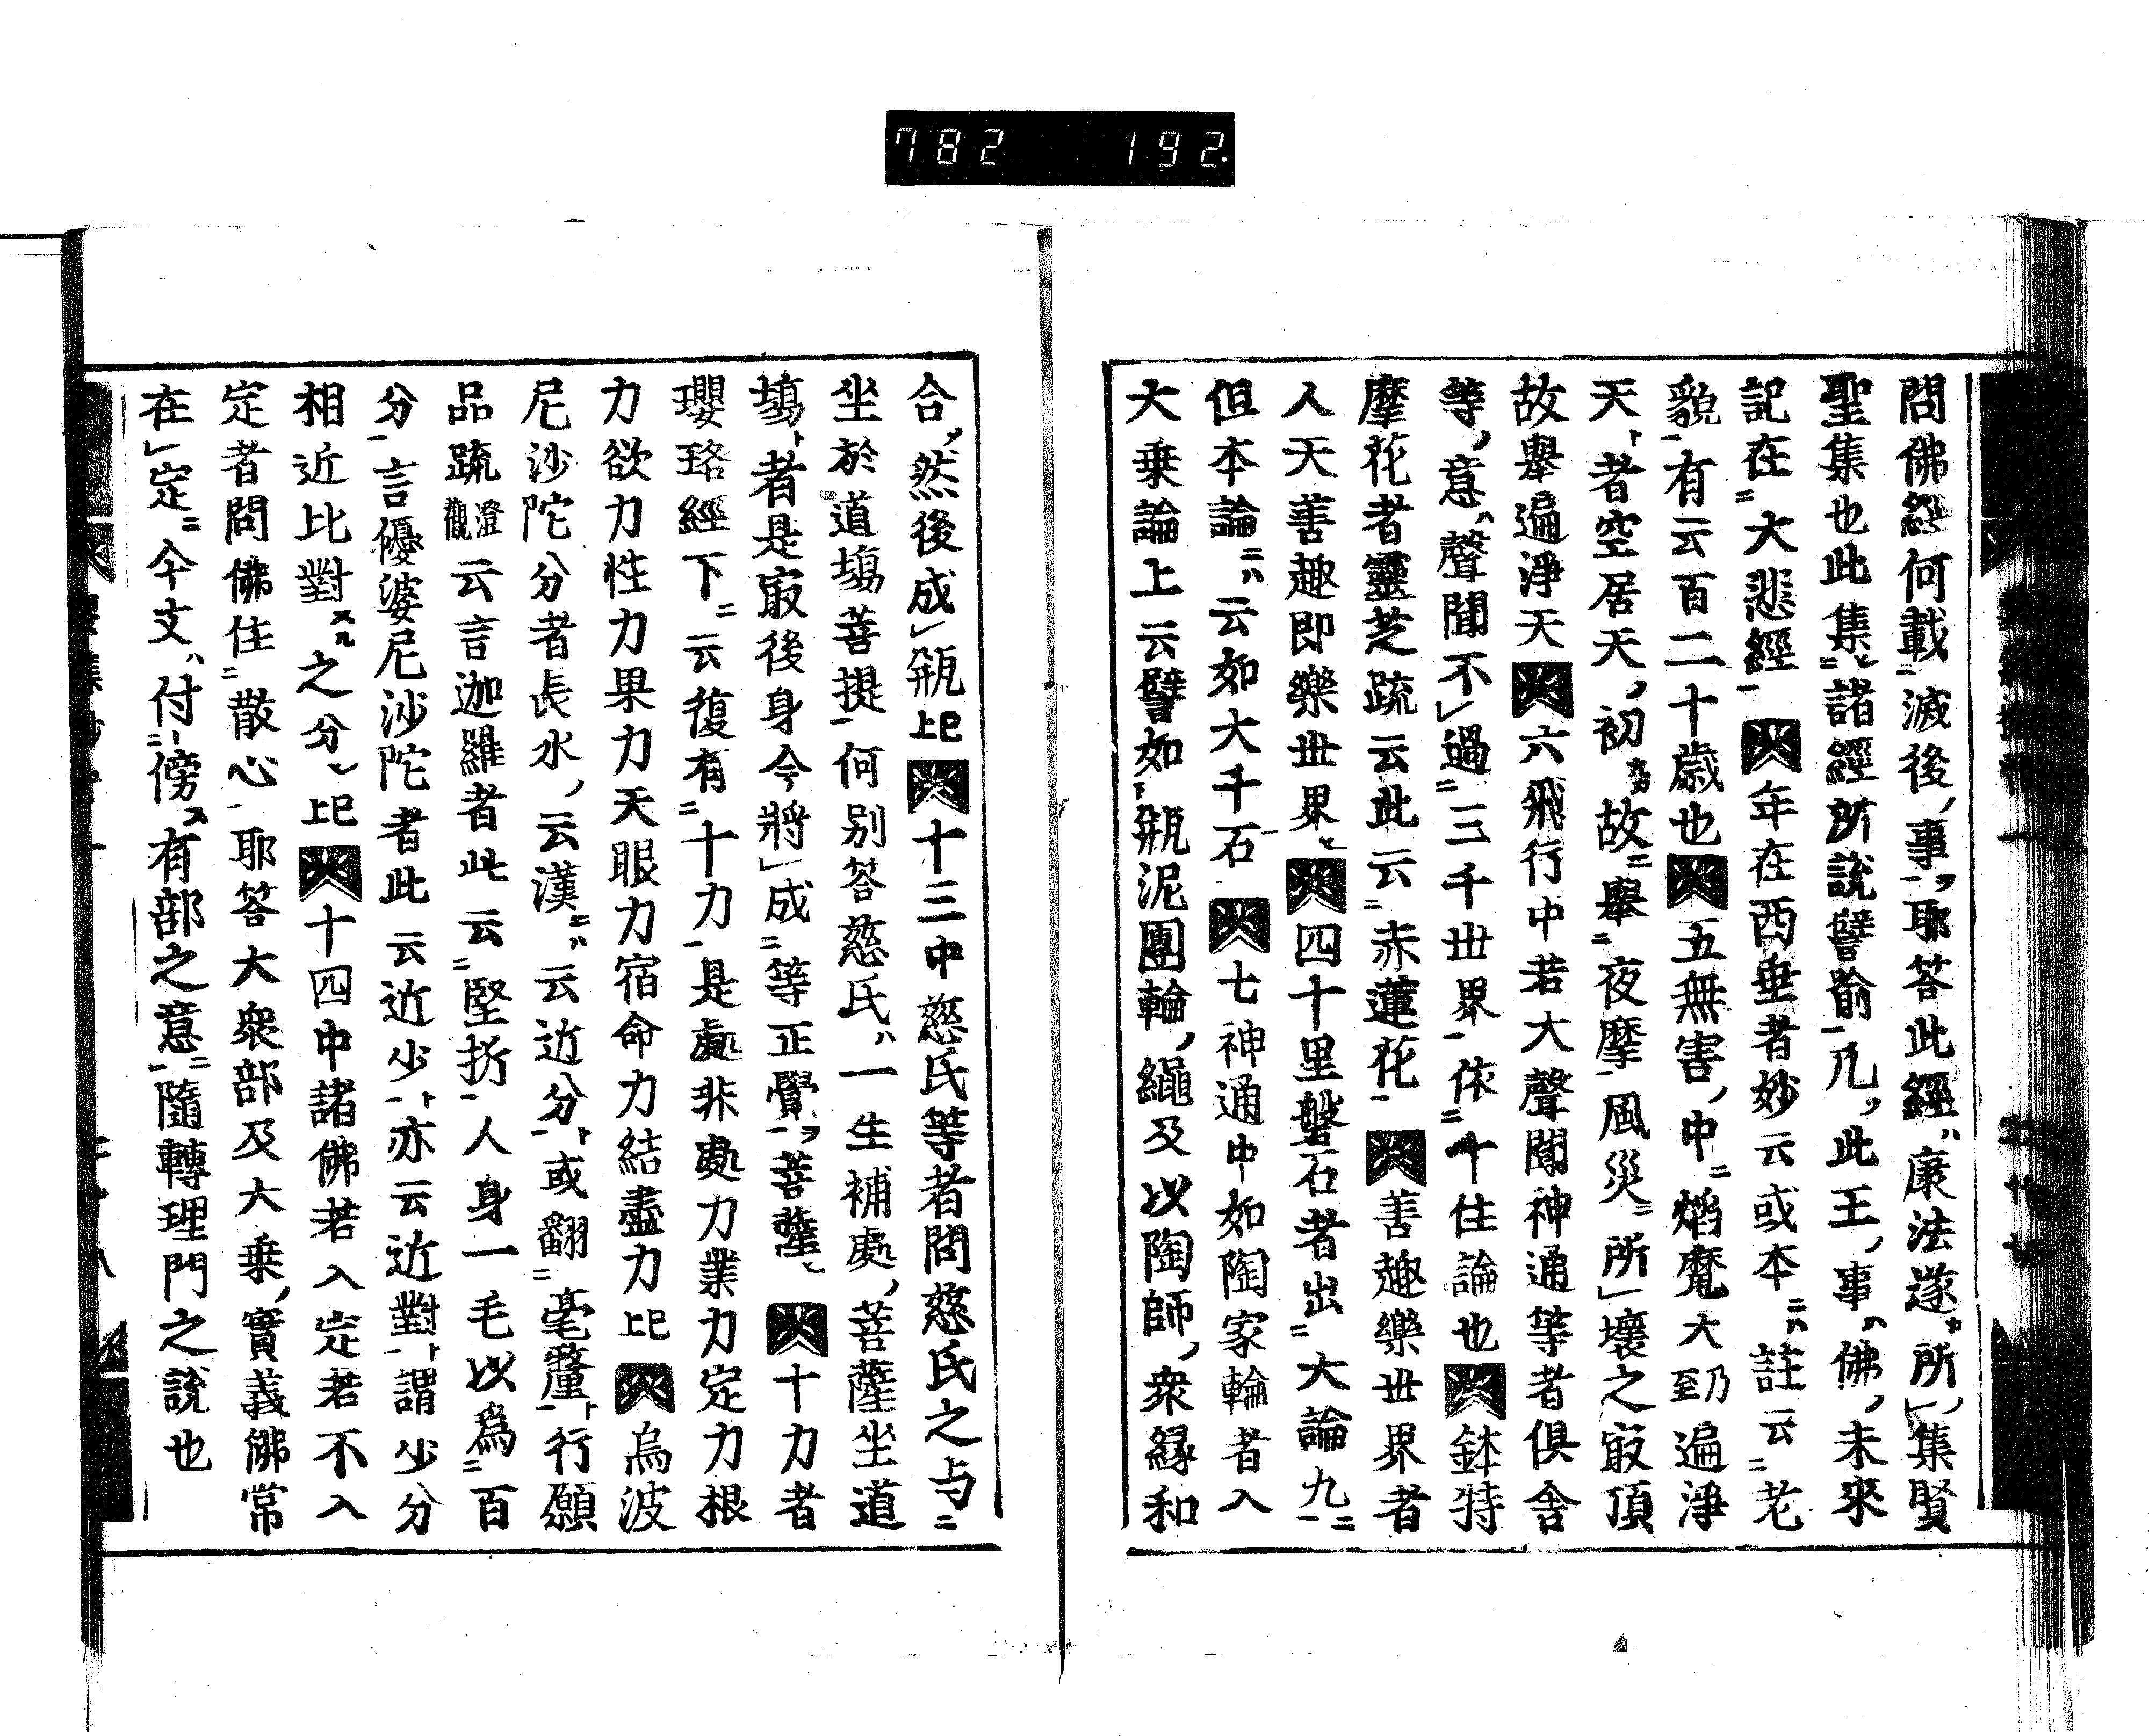 782 192.
問佛經何載滅後事耶答此經廉法遂所集賢
聖集也此集諸經所說譬喻凡此王事佛未來
記在大悲經 年在西垂者妙云或本註云老
貌有云百二十歲也 五無害中焰魔大乃至遍淨
天者空居天初故舉夜摩風災所壞之㝡頂
故舉遍淨天 六飛行中若大聲聞神通等者俱舍
等意聲聞不過三千世界依十住論也 鉢特
摩花者靈芝疏云此云赤蓮花 善趣樂世界者
人天善趣即樂世界 四十里磐石者出大論九
但本論云如大千石 七神通中如陶家輪者入
大乗論上云譬如瓶泥團輪繩及以陶師衆緣和
合然後成瓶已上 十三中慈氏等者問慈氏之与
坐於道塲菩提何別答慈氏一生補處菩薩坐道
塲者是㝡後身今將成等正覺菩薩 十力者
瓔珞經下云復有十力是處非處力業力定力根
力欲力性力果力天眼力宿命力結盡力已上 烏波
尼沙陀分者長水云漢云近分或翻毫釐行願
品疏澄觀云言迦羅者此云堅折人身一毛以爲百
分言優婆尼沙陀者此云近少亦云近對謂少分
相近比對之分已上 十四中諸佛若入定若不入
定者問佛住散心耶答大衆部及大乗實義佛常
在定今文付傍有部之意隨轉理門之說也